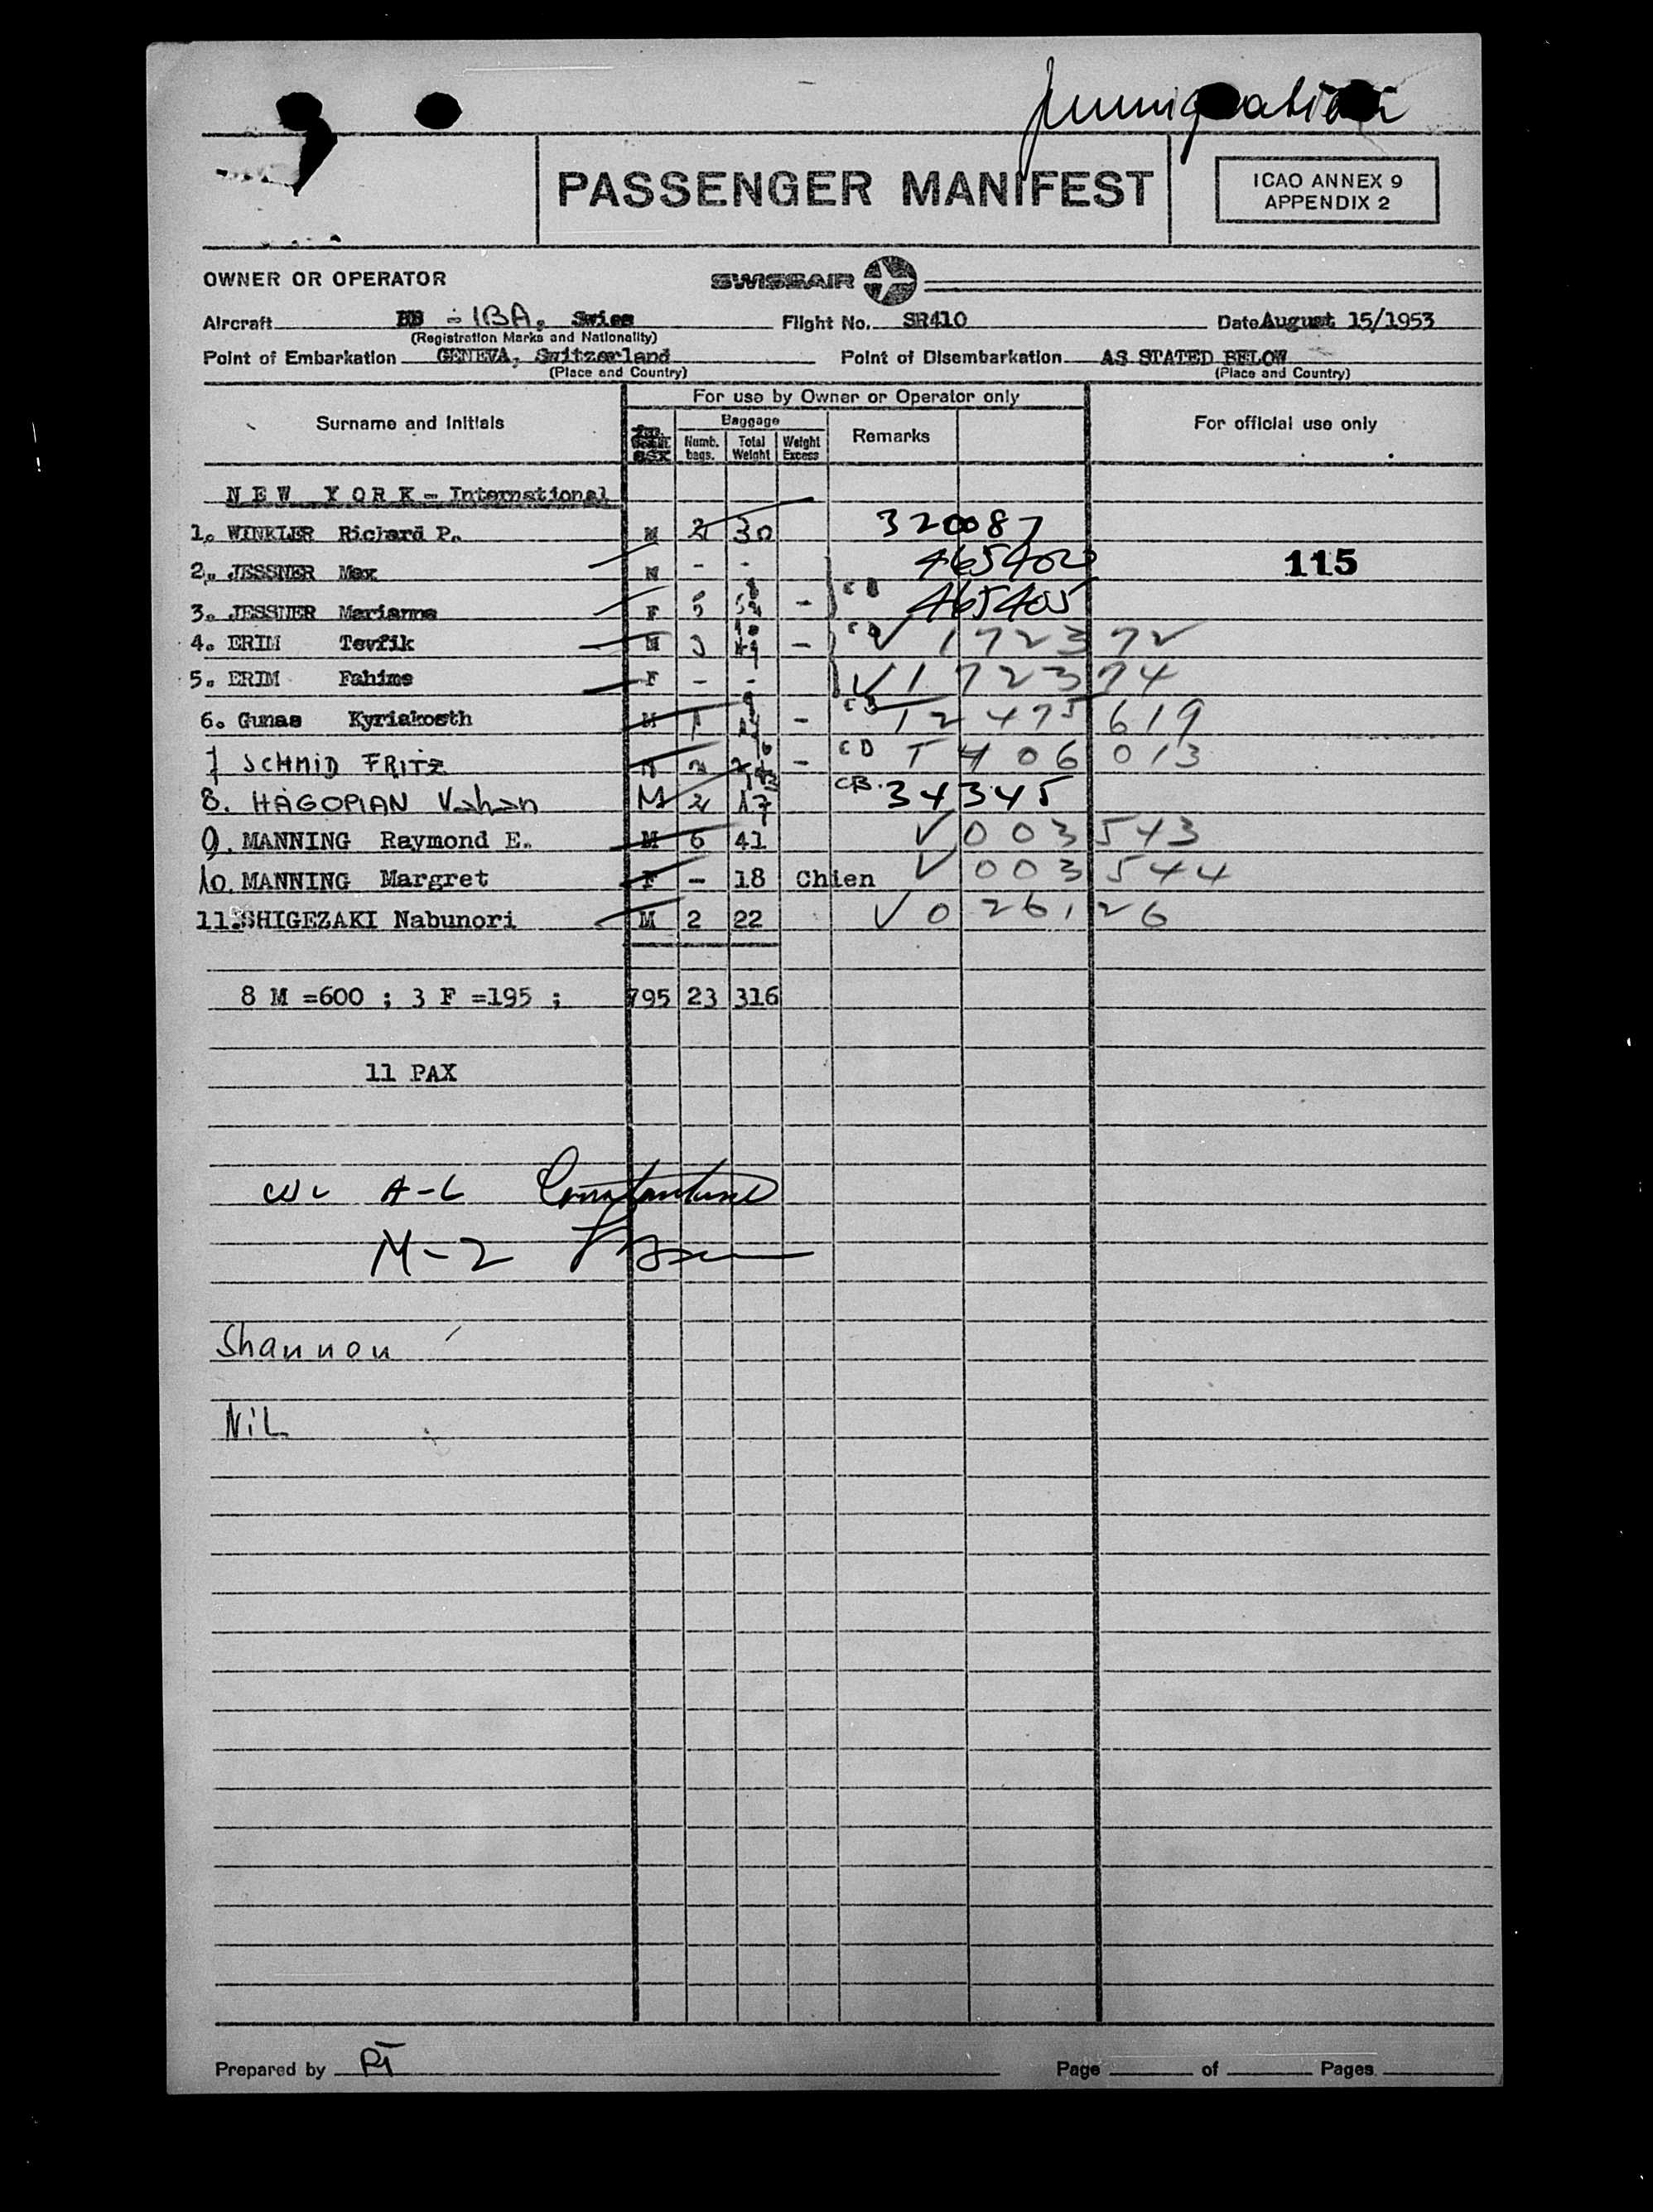 Immigration
PASSENGER MANIFEST
ICAO ANNEX 9
APPENDIX 2
OWNER OR OPERATOR
SWISSAIR
Aircraft HB - IBA, Swiss
Flight No. SR410
Date August 15/1953
(Registration Marks and Nationality)
Point of Embarkation GENEVA, Switzerland
Point of Disembarkation AS STATED BELOW
(Place and Country)
(Place and Country)
For use by Owner or Operator only
Surname and Initials
Baggage
Numb. bags.
Total Weight
Weight Excess
Remarks
For official use only
NEW YORK - International
1. WINKLER Richard P. M 2 30 320087
2. JESSNER Max M - - 465402
115
3. JESSNER Marianne F 5 - 465405
4. ERIM Tevfik M 3 - V 172372
5. ERIM Fahime F - - V 172374
6. Gunas Kyriakosth M 1 - T2 475619
7 SCHMID FRITZ M 2 - CD T 406013
8. HAGOPIAN Vahan M 2 17 CB. 34345
9. MANNING Raymond E. M 6 41 V 003543
10. MANNING Margret F - 18 Chien V 003544
11. SHIGEZAKI Nabunori M 2 22 V 026126
8 M =600 ; 3 F =195 ; 795 23 316
11 PAX
A-L Constantine
M-Z
Shannon
NiL
Prepared by PT
Page of Pages